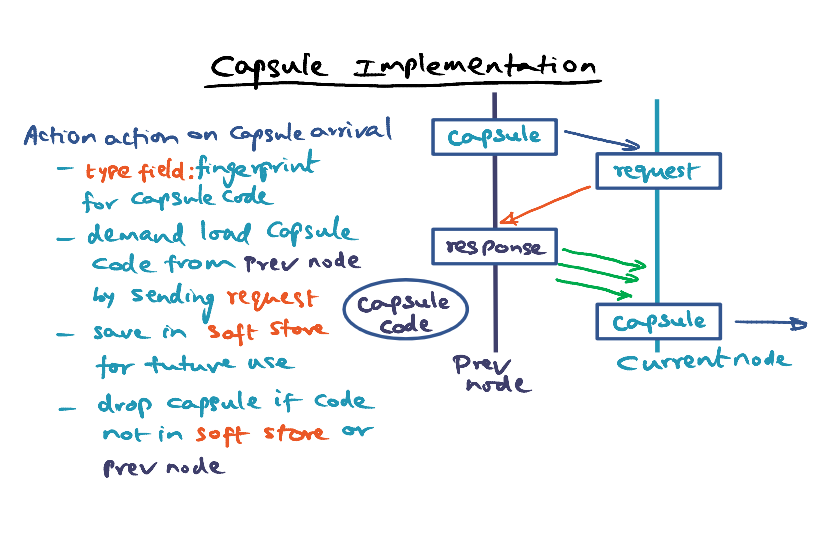 Capsule Implementation
Action action on capsule arrival
- type field: fingerprint
for capsule code
- demand load capsule
code from prev node
by sending request
- save in soft store
for future use
- drop capsule if code
not in soft store or
prev node
capsule
request
response
capsule
code
capsule
Prev
node
Current node